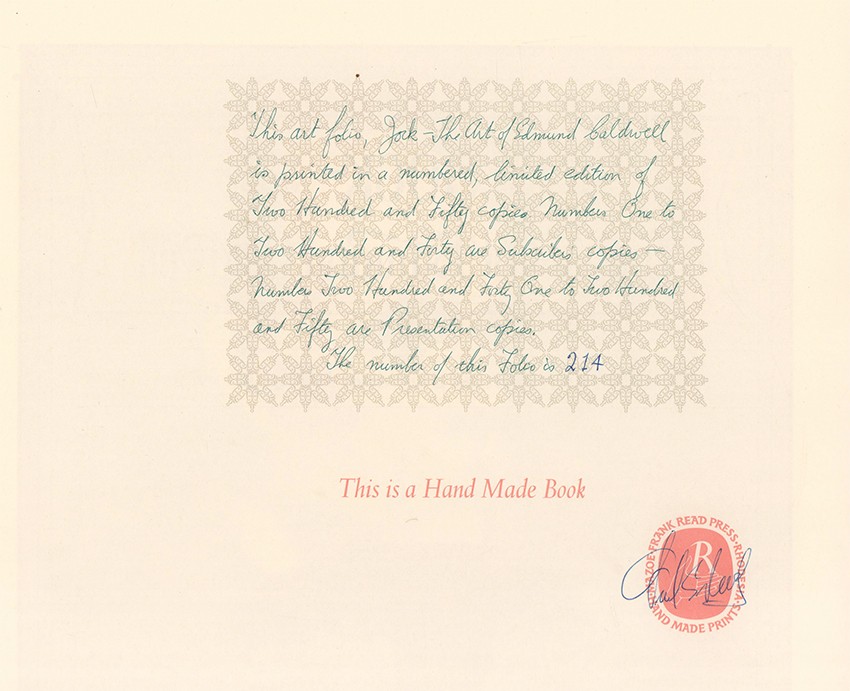 This art folio, Jock - The Art of Edmund Caldwell
is printed in a numbered, limited edition of
Two Hundred and Fifty copies. Numbers One to
Two Hundred and Forty are Subscribers copies —
Numbers Two Hundred and Forty One to Two Hundred
and Fifty are Presentation copies.
The number of this Folio is 214
This is a Hand Made Book
FRANK READ PRESS · RHODESIA ·
HAND MADE PRINTS
R